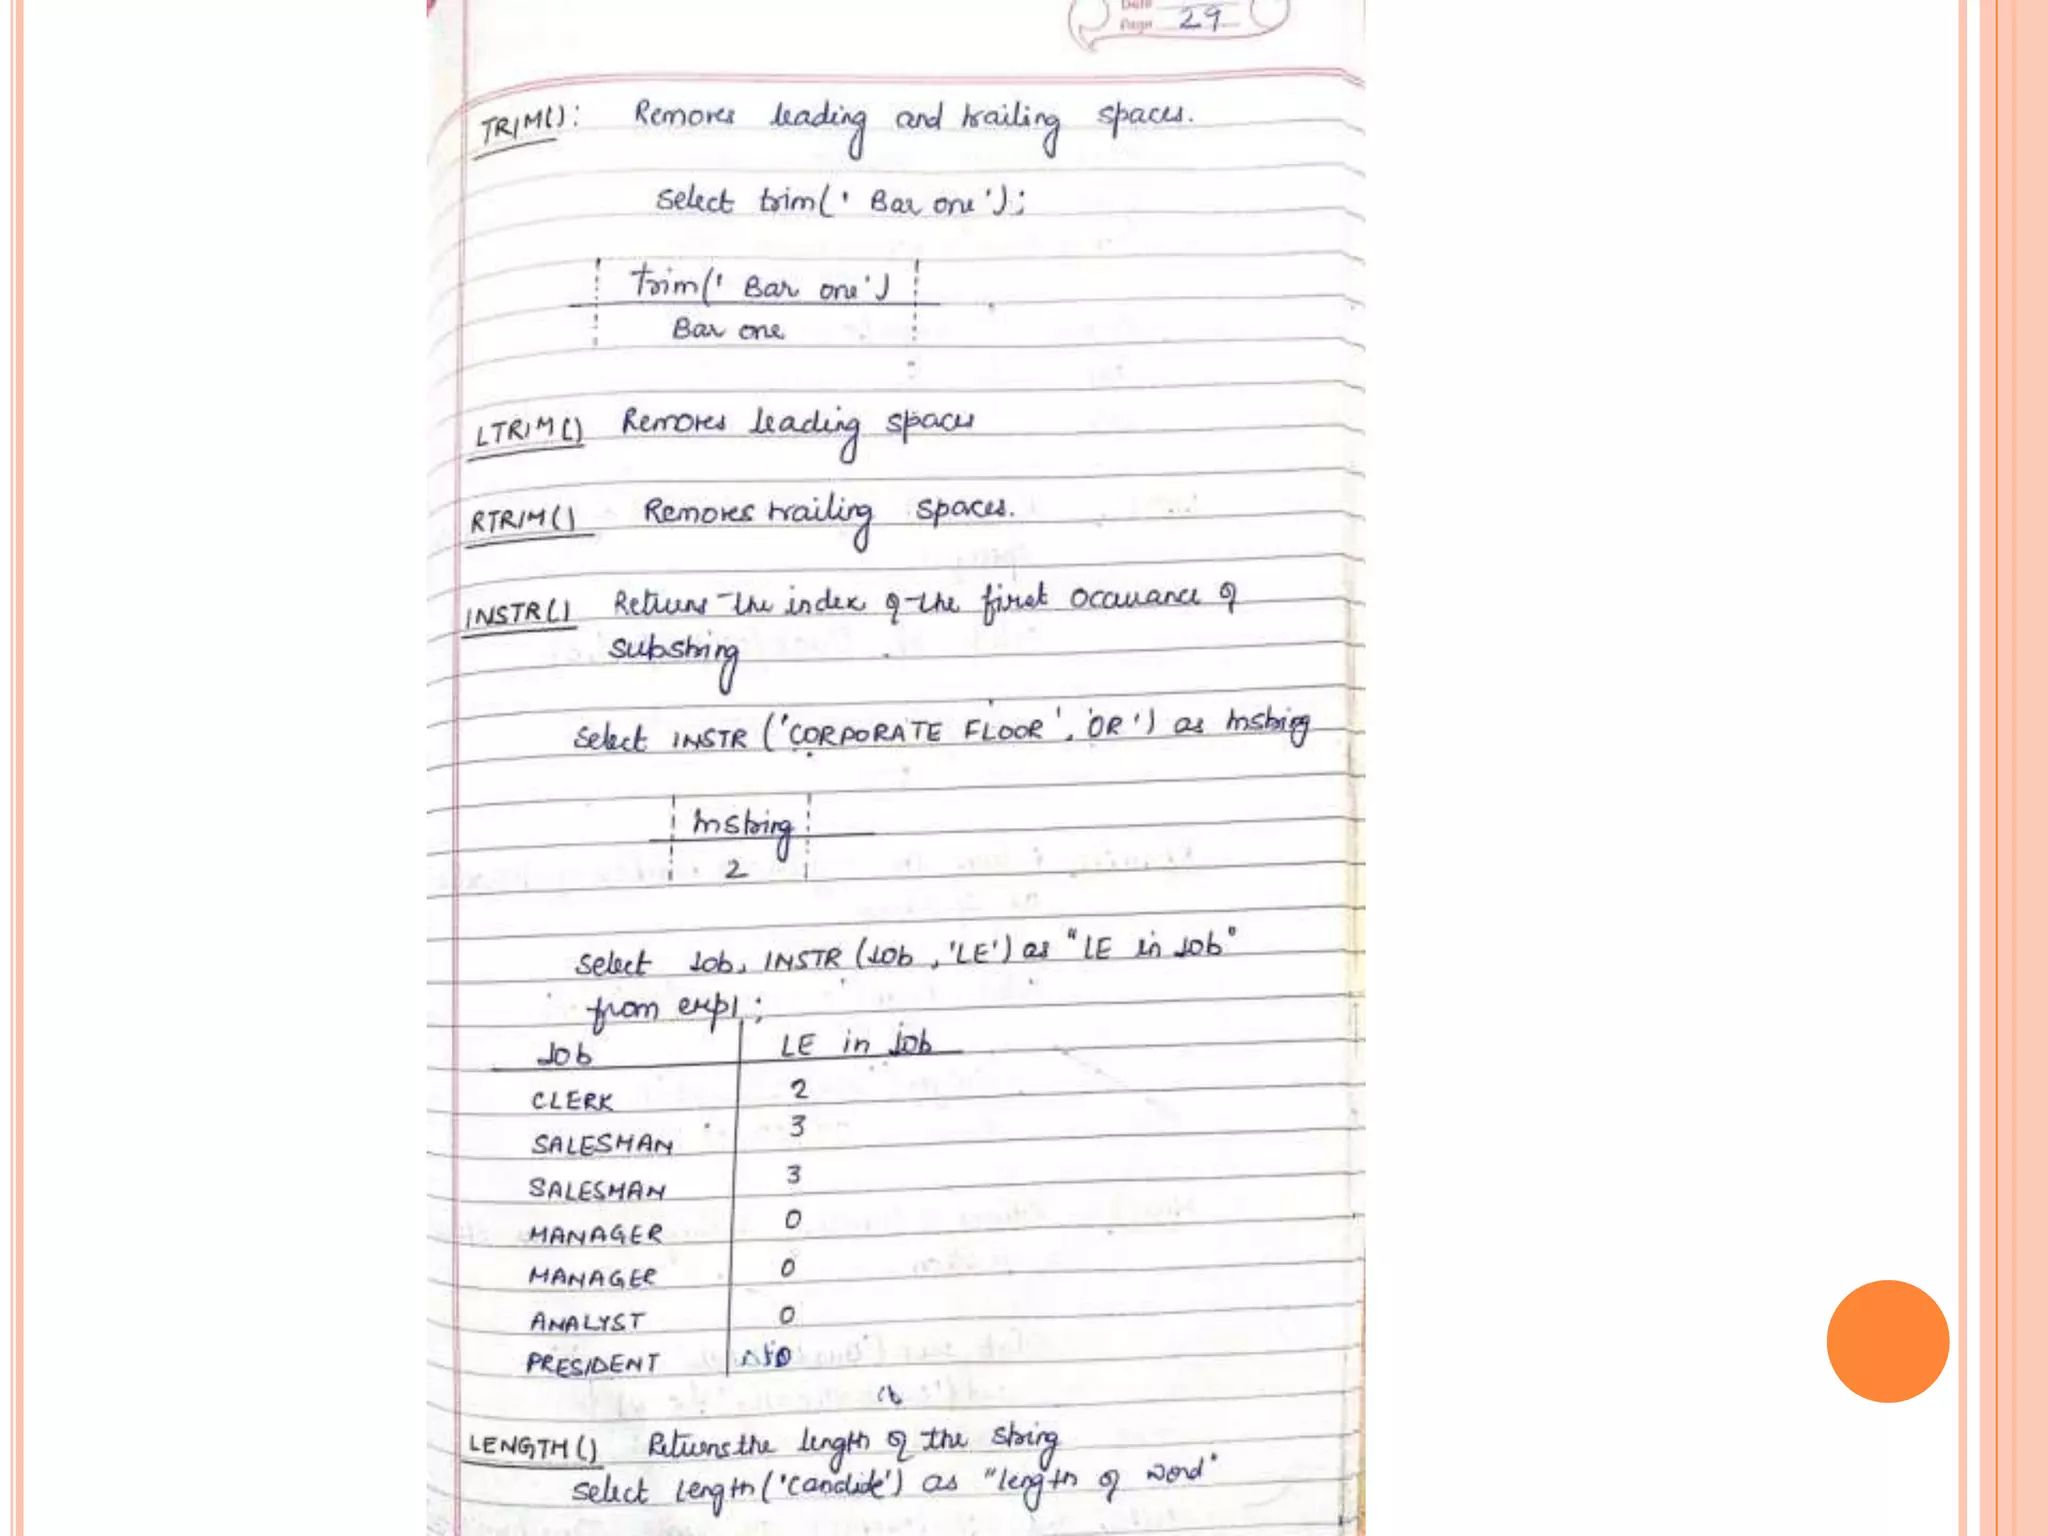 Date
Page 29
TRIM(): Removes leading and trailing spaces.
select trim(' Bar one');
trim(' Bar one')
Bar one
LTRIM() Removes leading spaces
RTRIM() Removes trailing spaces.
INSTR() Returns the index of the first occurance of
substring
Select INSTR ('CORPORATE FLOOR', 'OR') as Instring
Instring
2
Select Job, INSTR (Job, 'LE') as "LE in Job"
from empl;
Job LE in job
CLERK 2
SALESMAN 3
SALESMAN 3
MANAGER 0
MANAGER 0
ANALYST 0
PRESIDENT 0
LENGTH() Returns the length of the string
Select Length('Candide') as "length of word"